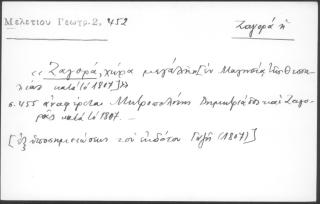 Μελετίου Γεωγρ. 2, 452
Ζαγορά ἡ
«Ζαγορά, χώρα μεγάλη [ἐν Μαγνησίᾳ τῆς Θεσσα-
λίας κατὰ τὸ 1807]»
σ. 455 ἀναφέρεται Μητροπολίτης Δημητριάδος καὶ Ζαγο-
ρᾶς κατὰ τὸ 1807.
[ἐξ ὑποσημειώσεως τοῦ ἐκδότου Γαζῆ (1807)]